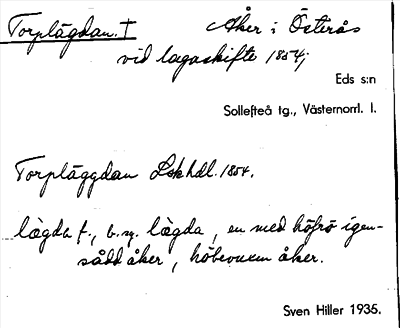 Torplägdan. † Åker i Österås
vid lagaskifte 1854;
Eds s:n
Sollefteå tg., Västernorrl. l.
Torpläggdan Lskhdl. 1854.
lägda f., b.m. lägda, en med höfrö igen-
sådd åker, höbevuxen åker.
Sven Hiller 1935.